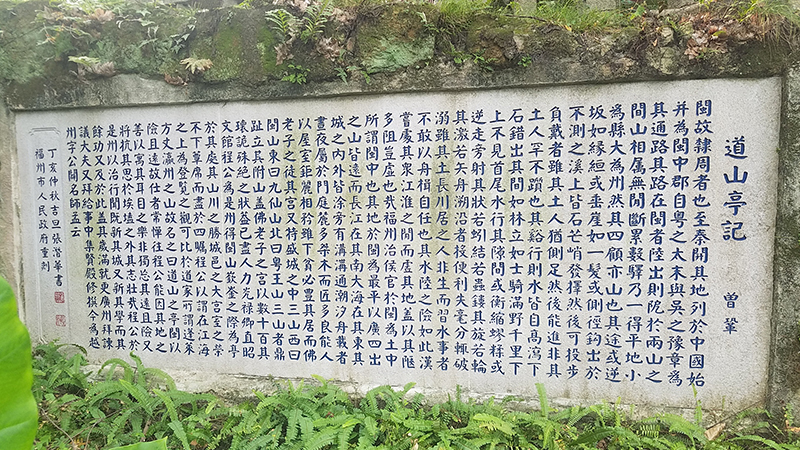 道山亭記　曾鞏
閩故隸周者也至秦開其地列於中國始
并為閩中郡自粵之太末與吳之豫章為
其通路其路在閩者陸出則阸於兩山之
間山相屬無間斷累數驛乃一得平地小
為縣大為州然其四顧亦山也其途或逆
坂如緣絙或垂崖如一髮或側徑鉤出於
不測之溪上皆石芒峭發擇然後可投步
負戴者雖其土人猶側足然後能進非其
土人罕不躓也其谿行則水皆自高瀉下
石錯出其間如林立如士騎滿野千里下
上不見首尾水行其隙間或衡縮蟉糅或
逆走旁射其狀若蚓結若蟲鏤其旋若輪
其激若矢舟溯沿者投便利失毫分輒破
溺雖其土長川居之人非生而習水事者
不敢以舟楫自任也其水陸之險如此漢
嘗處其眾江淮之間而虛其地蓋以其陿
多阻豈虛也哉福州治侯官於閩為土中
所謂閩中也其地於閩為最平以廣四出
之山皆遠而長江在其南大海在其東其
城之內外皆涂旁有溝溝通潮汐舟載者
晝夜屬於門庭麓多桀木而匠多良能人
以屋室鉅麗相矜雖下貧必豐其居而佛
老子之徒其宮又特盛城之中三山西曰
閩山東曰九仙山北曰粵王山三山者鼎
趾立其附山蓋佛老子之宮以數十百其
瓌詭殊絕之狀蓋已盡人力光祿卿直昭
文館程公為是州得閩山嶔崟之際為亭
於其處其山川之勝城邑之大宮室之榮
不下簟席而盡於四矚程公以謂在江海
之上為登覽之觀可比於道家所謂蓬萊
方丈瀛州之山故名之曰道山之亭閩以
險且遠故仕者常憚往程公能因其地之
善以寓其耳目之樂非獨忘其遠且險又
將抗其思於埃壒之外其志壯哉程公於
是州以治行聞既新其城又新其學而其
餘功又及於此蓋其歲滿就更廣州拜諫
議大夫又拜給事中集賢殿修撰今為越
州字公闢名師孟云
丁亥仲秋吉旦張潛華書
福州市人民政府重刻